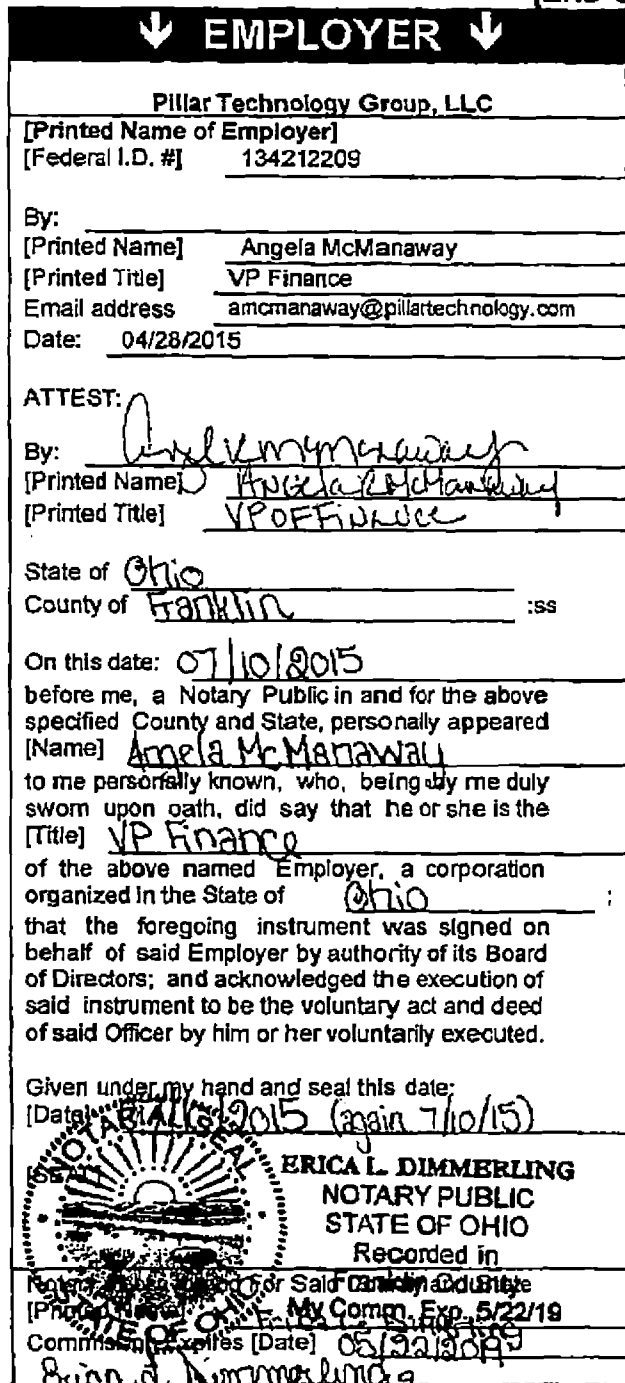 EMPLOYER
Pillar Technology Group, LLC
[Printed Name of Employer]
[Federal I.D. #] 134212209
By:
[Printed Name] Angela McManaway
[Printed Title] VP Finance
Email address amcmanaway@pillartechnology.com
Date: 04/28/2015
ATTEST:
By:
[Printed Name] Angela R McManaway
[Printed Title] VP OF FiNance
State of Ohio
County of Franklin :ss
On this date: 07/10/2015
before me, a Notary Public in and for the above
specified County and State, personally appeared
[Name] Angela McManaway
to me personally known, who, being by me duly
sworn upon oath, did say that he or she is the
[Title] VP Finance
of the above named Employer, a corporation
organized in the State of Ohio :
that the foregoing instrument was signed on
behalf of said Employer by authority of its Board
of Directors; and acknowledged the execution of
said instrument to be the voluntary act and deed
of said Officer by him or her voluntarily executed.
Given under my hand and seal this date:
[Date] 2015 (again 7/10/15)
NOTARIAL SEAL
STATE OF OHIO
ERICA L. DIMMERLING
NOTARY PUBLIC
STATE OF OHIO
Recorded in
Franklin County
My Comm. Exp. 5/22/19
For Said County and State
Commission Expires [Date] 05/22/2019